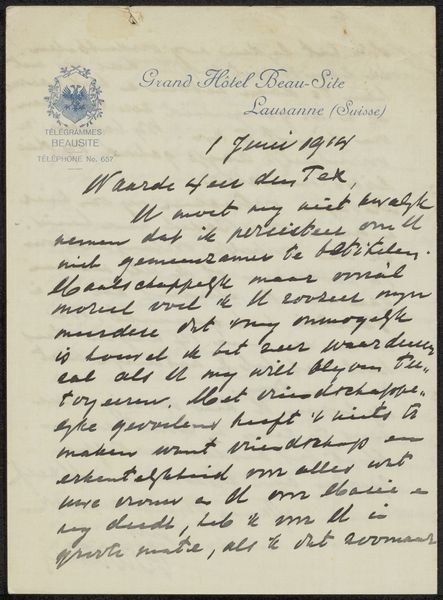 Grand Hôtel Beau-Site
Lausanne (Suisse)
TÉLÉGRAMMES
BEAUSITE
TÉLÉPHONE No. 657
1 Juni 1914
Waarde Heer den Tex,
U moet my niet kwalijk
nemen dat ik persisteer om U
niet gemeenzamer te betitelen.
Maatschappelijk maar vooral
moreel voel ik U zoozeer myn
meerdere dat my onmogelijk
is hoewel ik het zeer waardeeren
zal als U my wilt blyven tu-
toyeeren. Met vriendschappe-
lyke gevoelens heeft 't niets te
maken want vriendschap en
erkentelijkheid voor alles wat
uwe vrouw en U voor en
my deedt, heb ik voor U in
groote mate, als ik dat zoomaar